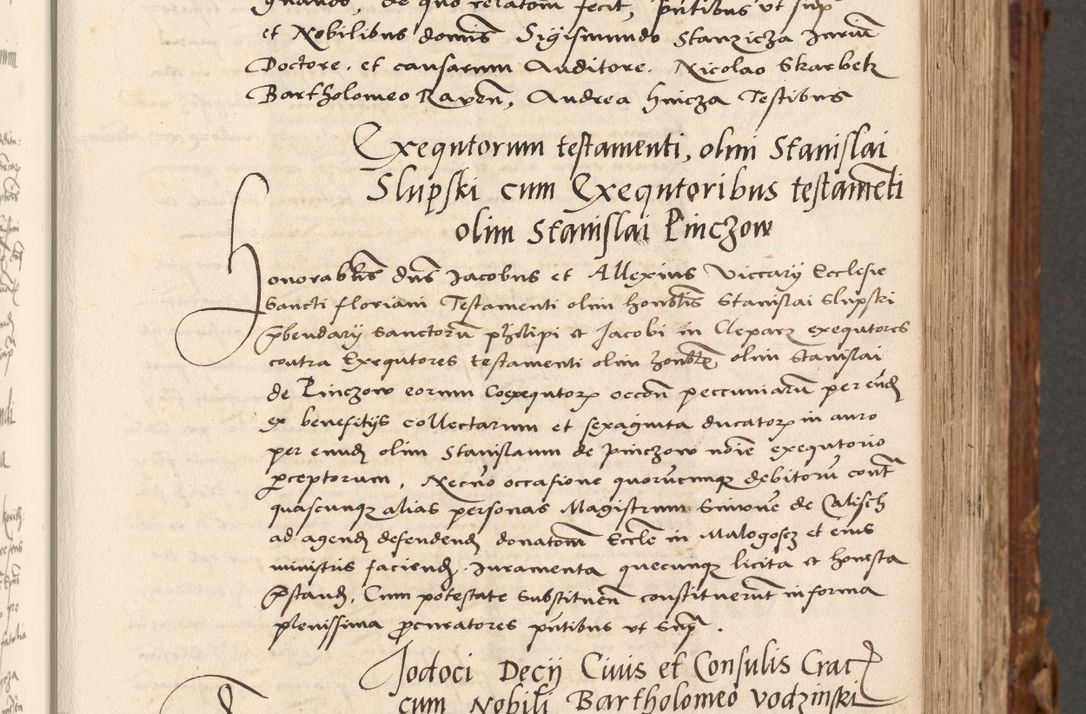 quando, de quo relatom fecit, pntibus ut sup
et Nobilibus domis Sigismundo Stanzicza Juriu
Doctore. et causarum Auditore. Nicolao Skarbek
Bartholomeo Raven, Andrea hincza Testibus
Exequtorum testamenti, olim Stanislai
Slupski cum Exequtoribus testameti
olim Stanislai Pinczow
Honorabiles dns Jacobus et Allexius Viccarij Ecclesie
Sancti floriani Testamenti olim honbtis Stanislai Slupski
pbendarij Sanctoru philipi et Jacobi in Cleparz exequtores
contra Exequtores testamenti olim honbte olim Stanislai
de Pinczow eorum Coexequtor occon peccuniaru per eud
ex benefitijs collectarum et sexaginta ducator in auro
per eund olim Stanislaum de pinczow noie exequtorio
pceptorum, Necno occasione quorucunq debitoru cont
quascunq alias personas Magistrum Simone de Calisch
ad agend defendend donatom Eccle in Malogoscz et eius
ministris faciend. Juramenta quecunq licita et honesta
pstand, Cum potestate Substituen constituerut in forma
plenissima pcuratores pntibus ut Sup.
Jodoci Decij Civis et Consulis Crac
cum Nobili Bartholomeo vodzinski